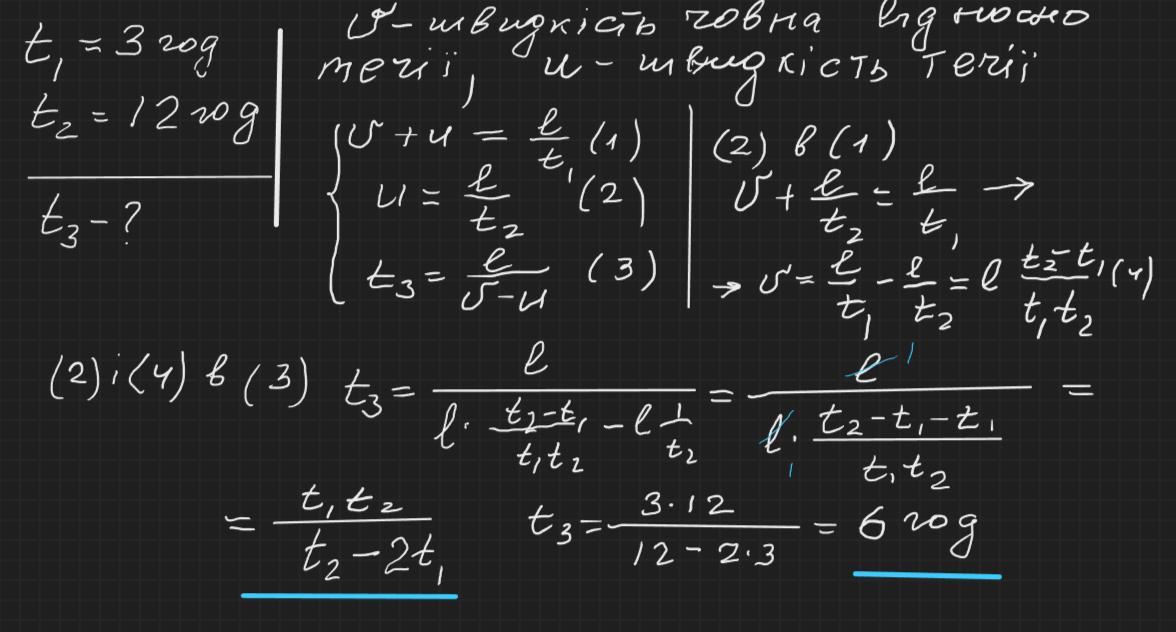 t₁ = 3 год
t₂ = 12 год
t₃ - ?
υ - швидкість човна відносно
течії, u - швидкість течії
υ + u = l/t₁ (1)
u = l/t₂ (2)
t₃ = l/(υ - u) (3)
(2) в (1)
υ + l/t₂ = l/t₁ →
→ υ = l/t₁ - l/t₂ = l (t₂ - t₁)/(t₁t₂) (4)
(2) і (4) в (3) t₃ = l/(l · (t₂ - t₁)/(t₁t₂) - l 1/t₂) = l 1/(l 1 · (t₂ - t₁ - t₁)/(t₁t₂)) =
= t₁t₂/(t₂ - 2t₁) t₃ = (3 · 12)/(12 - 2 · 3) = 6 год